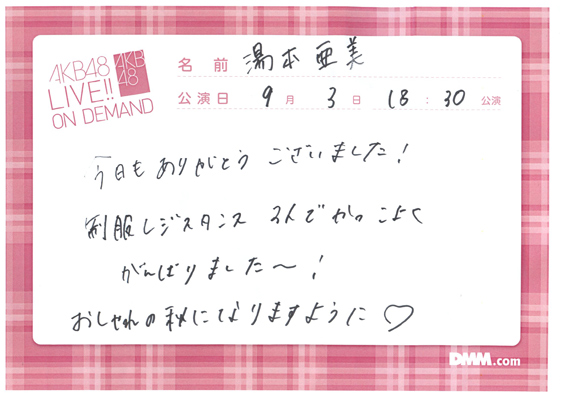 AKB48
LIVE!!
ON DEMAND
AKB
48
名前 湯本亜美
公演日 9月 3日 18:30 公演
今日もありがとうございました!
制服レジスタンス 3人でかっこよく
がんばりました〜!
おしゃれの秋になりますように♡
DMM.com